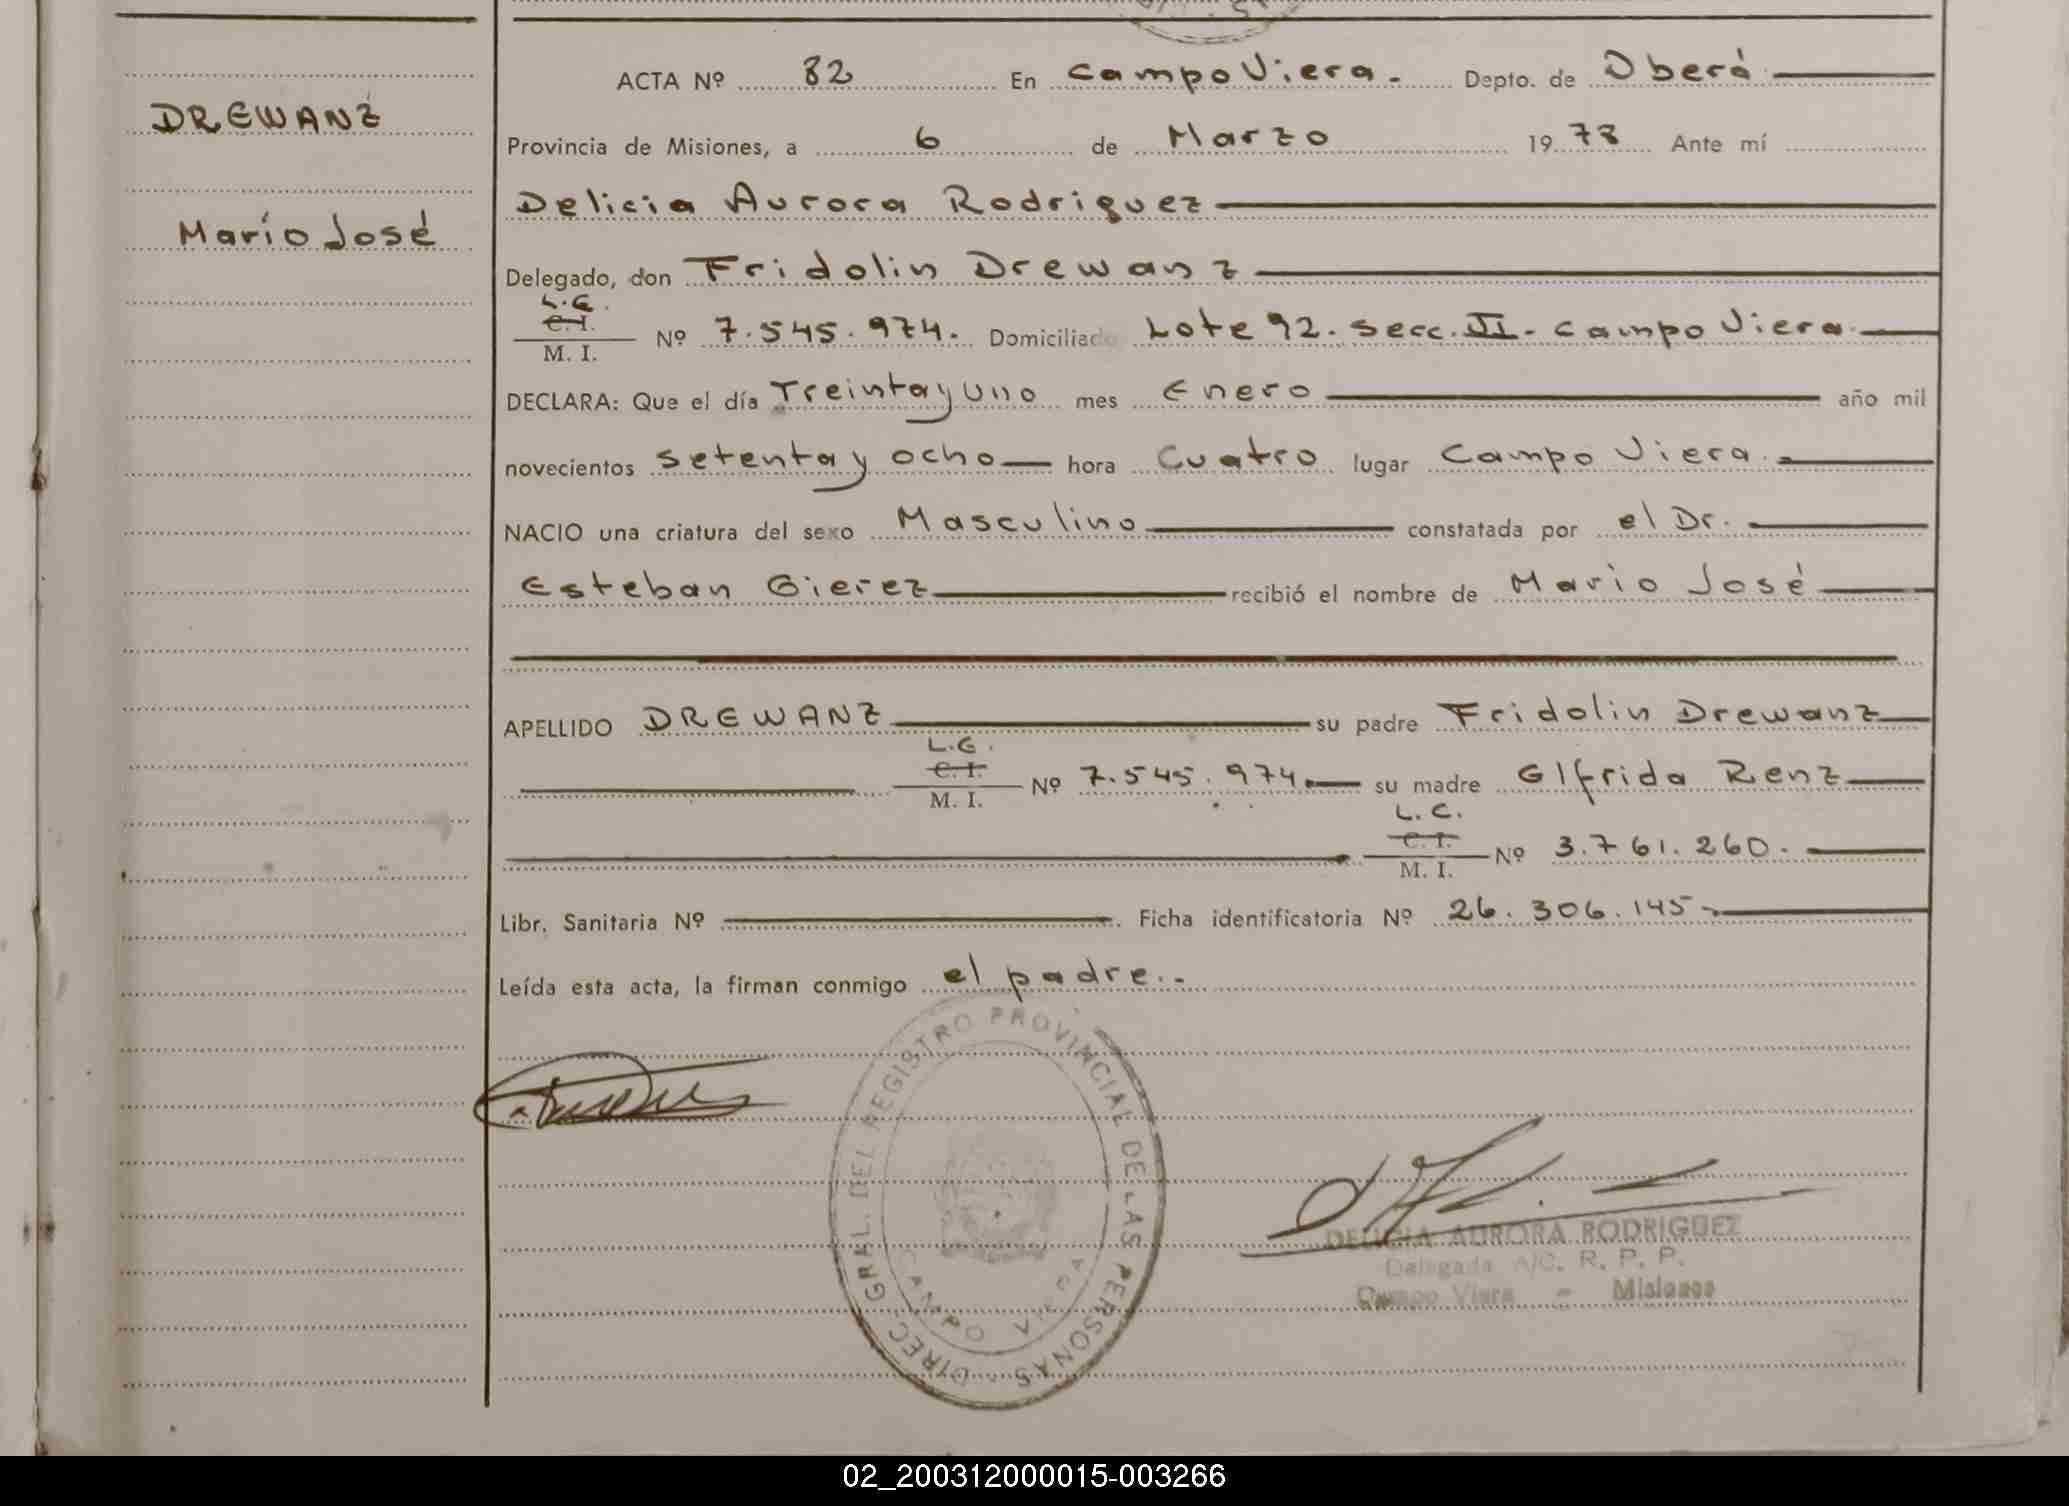 DREWANZ
Mario José
ACTA Nº 82 En Campo Viera.- Depto. de Oberá
Provincia de Misiones, a 6 de Marzo 1978 Ante mí
Delicia Aurora Rodriguez
Delegado, don Fridolin Drewanz
L.E.
C.I.
M. I. Nº 7.545.974. Domiciliado Lote 92. secc. II- Campo Viera.
DECLARA: Que el día Treinta y Uno mes Enero año mil
novecientos setenta y ocho hora Cuatro lugar Campo Viera.
NACIO una criatura del sexo Masculino constatada por el Dr.
Esteban Gierez recibió el nombre de Mario José
APELLIDO DREWANZ su padre Fridolin Drewanz
L.E.
C.I.
M. I. Nº 7.545.974. su madre Glfrida Renz
L.C.
C.I.
M. I. Nº 3.761.260.
Libr. Sanitaria Nº Ficha identificatoria Nº 26.306.145-
Leída esta acta, la firman conmigo el padre.-
DIREC. GRAL. DEL REGISTRO PROVINCIAL DE LAS PERSONAS
CAMPO VIERA
DELICIA AURORA RODRIGUEZ
Delegada A/C. R. P. P.
Campo Viera - Misiones
02_200312000015-003266